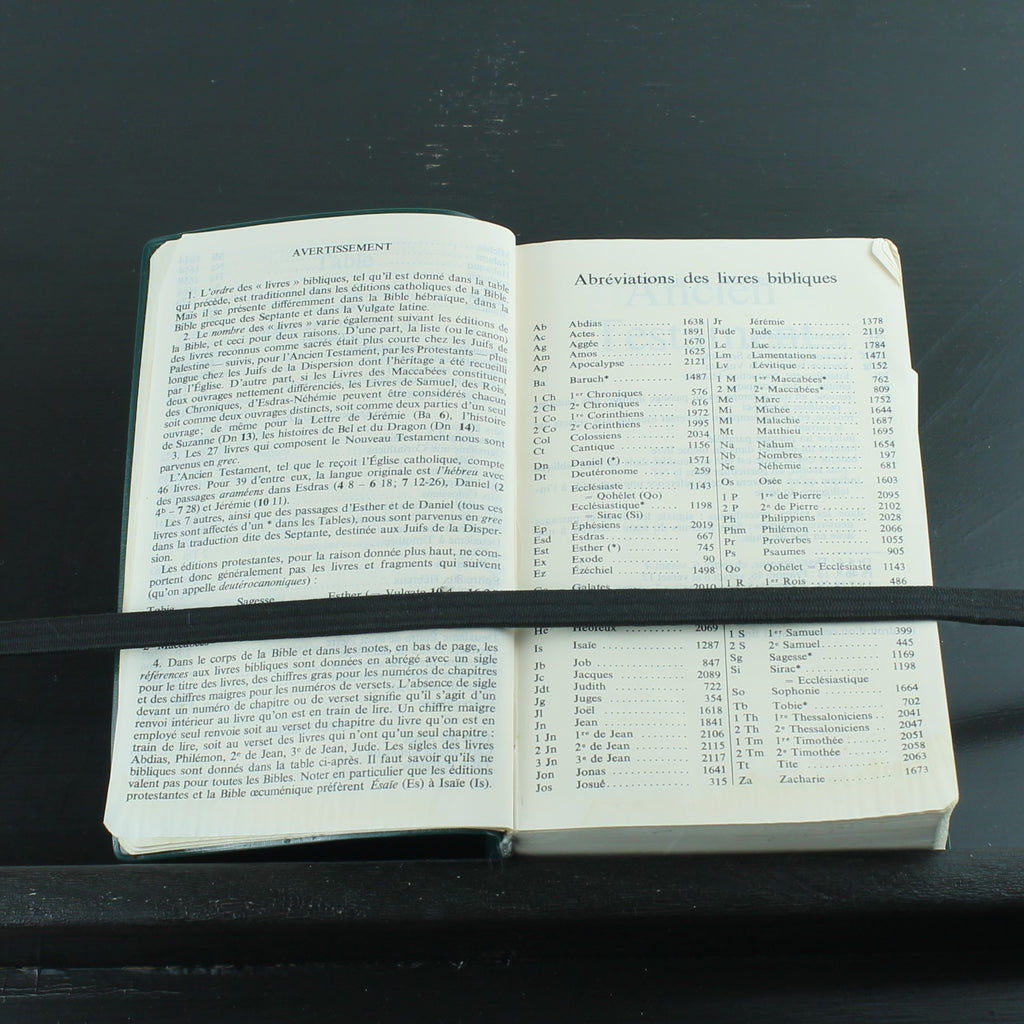 AVERTISSEMENT
1. L'ordre des « livres » bibliques, tel qu'il est donné dans la table
qui précède, est traditionnel dans les éditions catholiques de la Bible.
Mais il se présente différemment dans la Bible hébraïque, dans la
Bible grecque des Septante et dans la Vulgate latine.
2. Le nombre des « livres » varie également suivant les éditions de
la Bible, et ceci pour deux raisons. D'une part, la liste (ou le canon)
des livres reconnus comme sacrés était plus courte chez les Juifs de
Palestine — suivis, pour l'Ancien Testament, par les Protestants — plus
longue chez les Juifs de la Dispersion dont l'héritage a été recueilli
par l'Église. D'autre part, si les Livres des Maccabées constituent
deux ouvrages nettement différenciés, les Livres de Samuel, des Rois,
des Chroniques, d'Esdras-Néhémie peuvent être considérés chacun
soit comme deux ouvrages distincts, soit comme deux parties d'un seul
ouvrage; de même pour la Lettre de Jérémie (Ba 6), l'histoire
de Suzanne (Dn 13), les histoires de Bel et du Dragon (Dn 14).
3. Les 27 livres qui composent le Nouveau Testament nous sont
parvenus en grec.
L'Ancien Testament, tel que le reçoit l'Église catholique, compte
46 livres. Pour 39 d'entre eux, la langue originale est l'hébreu avec
des passages araméens dans Esdras (4 8 – 6 18; 7 12-26), Daniel (2
4b – 7 28) et Jérémie (10 11).
Les 7 autres, ainsi que des passages d'Esther et de Daniel (tous ces
livres sont affectés d'un * dans les Tables), nous sont parvenus en grec
dans la traduction dite des Septante, destinée aux Juifs de la Disper-
sion.
Les éditions protestantes, pour la raison donnée plus haut, ne com-
portent donc généralement pas les livres et fragments qui suivent
(qu'on appelle deutérocanoniques) :
Tobie Sagesse Esther (= Vulgate 10 4
2 Maccabées
4. Dans le corps de la Bible et dans les notes, en bas de page, les
références aux livres bibliques sont données en abrégé avec un sigle
pour le titre des livres, des chiffres gras pour les numéros de chapitres
et des chiffres maigres pour les numéros de versets. L'absence de sigle
devant un numéro de chapitre ou de verset signifie qu'il s'agit d'un
renvoi intérieur au livre qu'on est en train de lire. Un chiffre maigre
employé seul renvoie soit au verset du chapitre du livre qu'on est en
train de lire, soit au verset des livres qui n'ont qu'un seul chapitre :
Abdias, Philémon, 2e de Jean, 3e de Jean, Jude. Les sigles des livres
bibliques sont donnés dans la table ci-après. Il faut savoir qu'ils ne
valent pas pour toutes les Bibles. Noter en particulier que les éditions
protestantes et la Bible œcuménique préfèrent Ésaïe (Es) à Isaïe (Is).
Abréviations des livres bibliques
Ab Abdias 1638
Ac Actes 1891
Ag Aggée 1670
Am Amos 1625
Ap Apocalypse 2121
Ba Baruch* 1487
1 Ch 1er Chroniques 576
2 Ch 2e Chroniques 616
1 Co 1re Corinthiens 1972
2 Co 2e Corinthiens 1995
Col Colossiens 2034
Ct Cantique 1156
Dn Daniel (*) 1571
Dt Deutéronome 259
Ecclésiaste 1143
= Qohélet (Qo)
Ecclésiastique* 1198
= Sirac (Si)
Ep Éphésiens 2019
Esd Esdras 667
Est Esther (*) 745
Ex Exode 90
Ez Ézéchiel 1498
Galates 2010
He Hébreux 2069
Is Isaïe 1287
Jb Job 847
Jc Jacques 2089
Jdt Judith 722
Jg Juges 354
Jl Joël 1618
Jn Jean 1841
1 Jn 1re de Jean 2106
2 Jn 2e de Jean 2115
3 Jn 3e de Jean 2117
Jon Jonas 1641
Jos Josué 315
Jr Jérémie 1378
Jude Jude 2119
Lc Luc 1784
Lm Lamentations 1471
Lv Lévitique 152
1 M 1er Maccabées* 762
2 M 2e Maccabées* 809
Mc Marc 1752
Mi Michée 1644
Ml Malachie 1687
Mt Matthieu 1695
Na Nahum 1654
Nb Nombres 197
Ne Néhémie 681
Os Osée 1603
1 P 1re de Pierre 2095
2 P 2e de Pierre 2102
Ph Philippiens 2028
Phm Philémon 2066
Pr Proverbes 1055
Ps Psaumes 905
Qo Qohélet = Ecclésiaste 1143
1 R 1er Rois 486
1 S 1er Samuel 399
2 S 2e Samuel 445
Sg Sagesse* 1169
Si Sirac* 1198
= Ecclésiastique
So Sophonie 1664
Tb Tobie* 702
1 Th 1re Thessaloniciens 2041
2 Th 2e Thessaloniciens 2047
1 Tm 1re Timothée 2051
2 Tm 2e Timothée 2058
Tt Tite 2063
Za Zacharie 1673